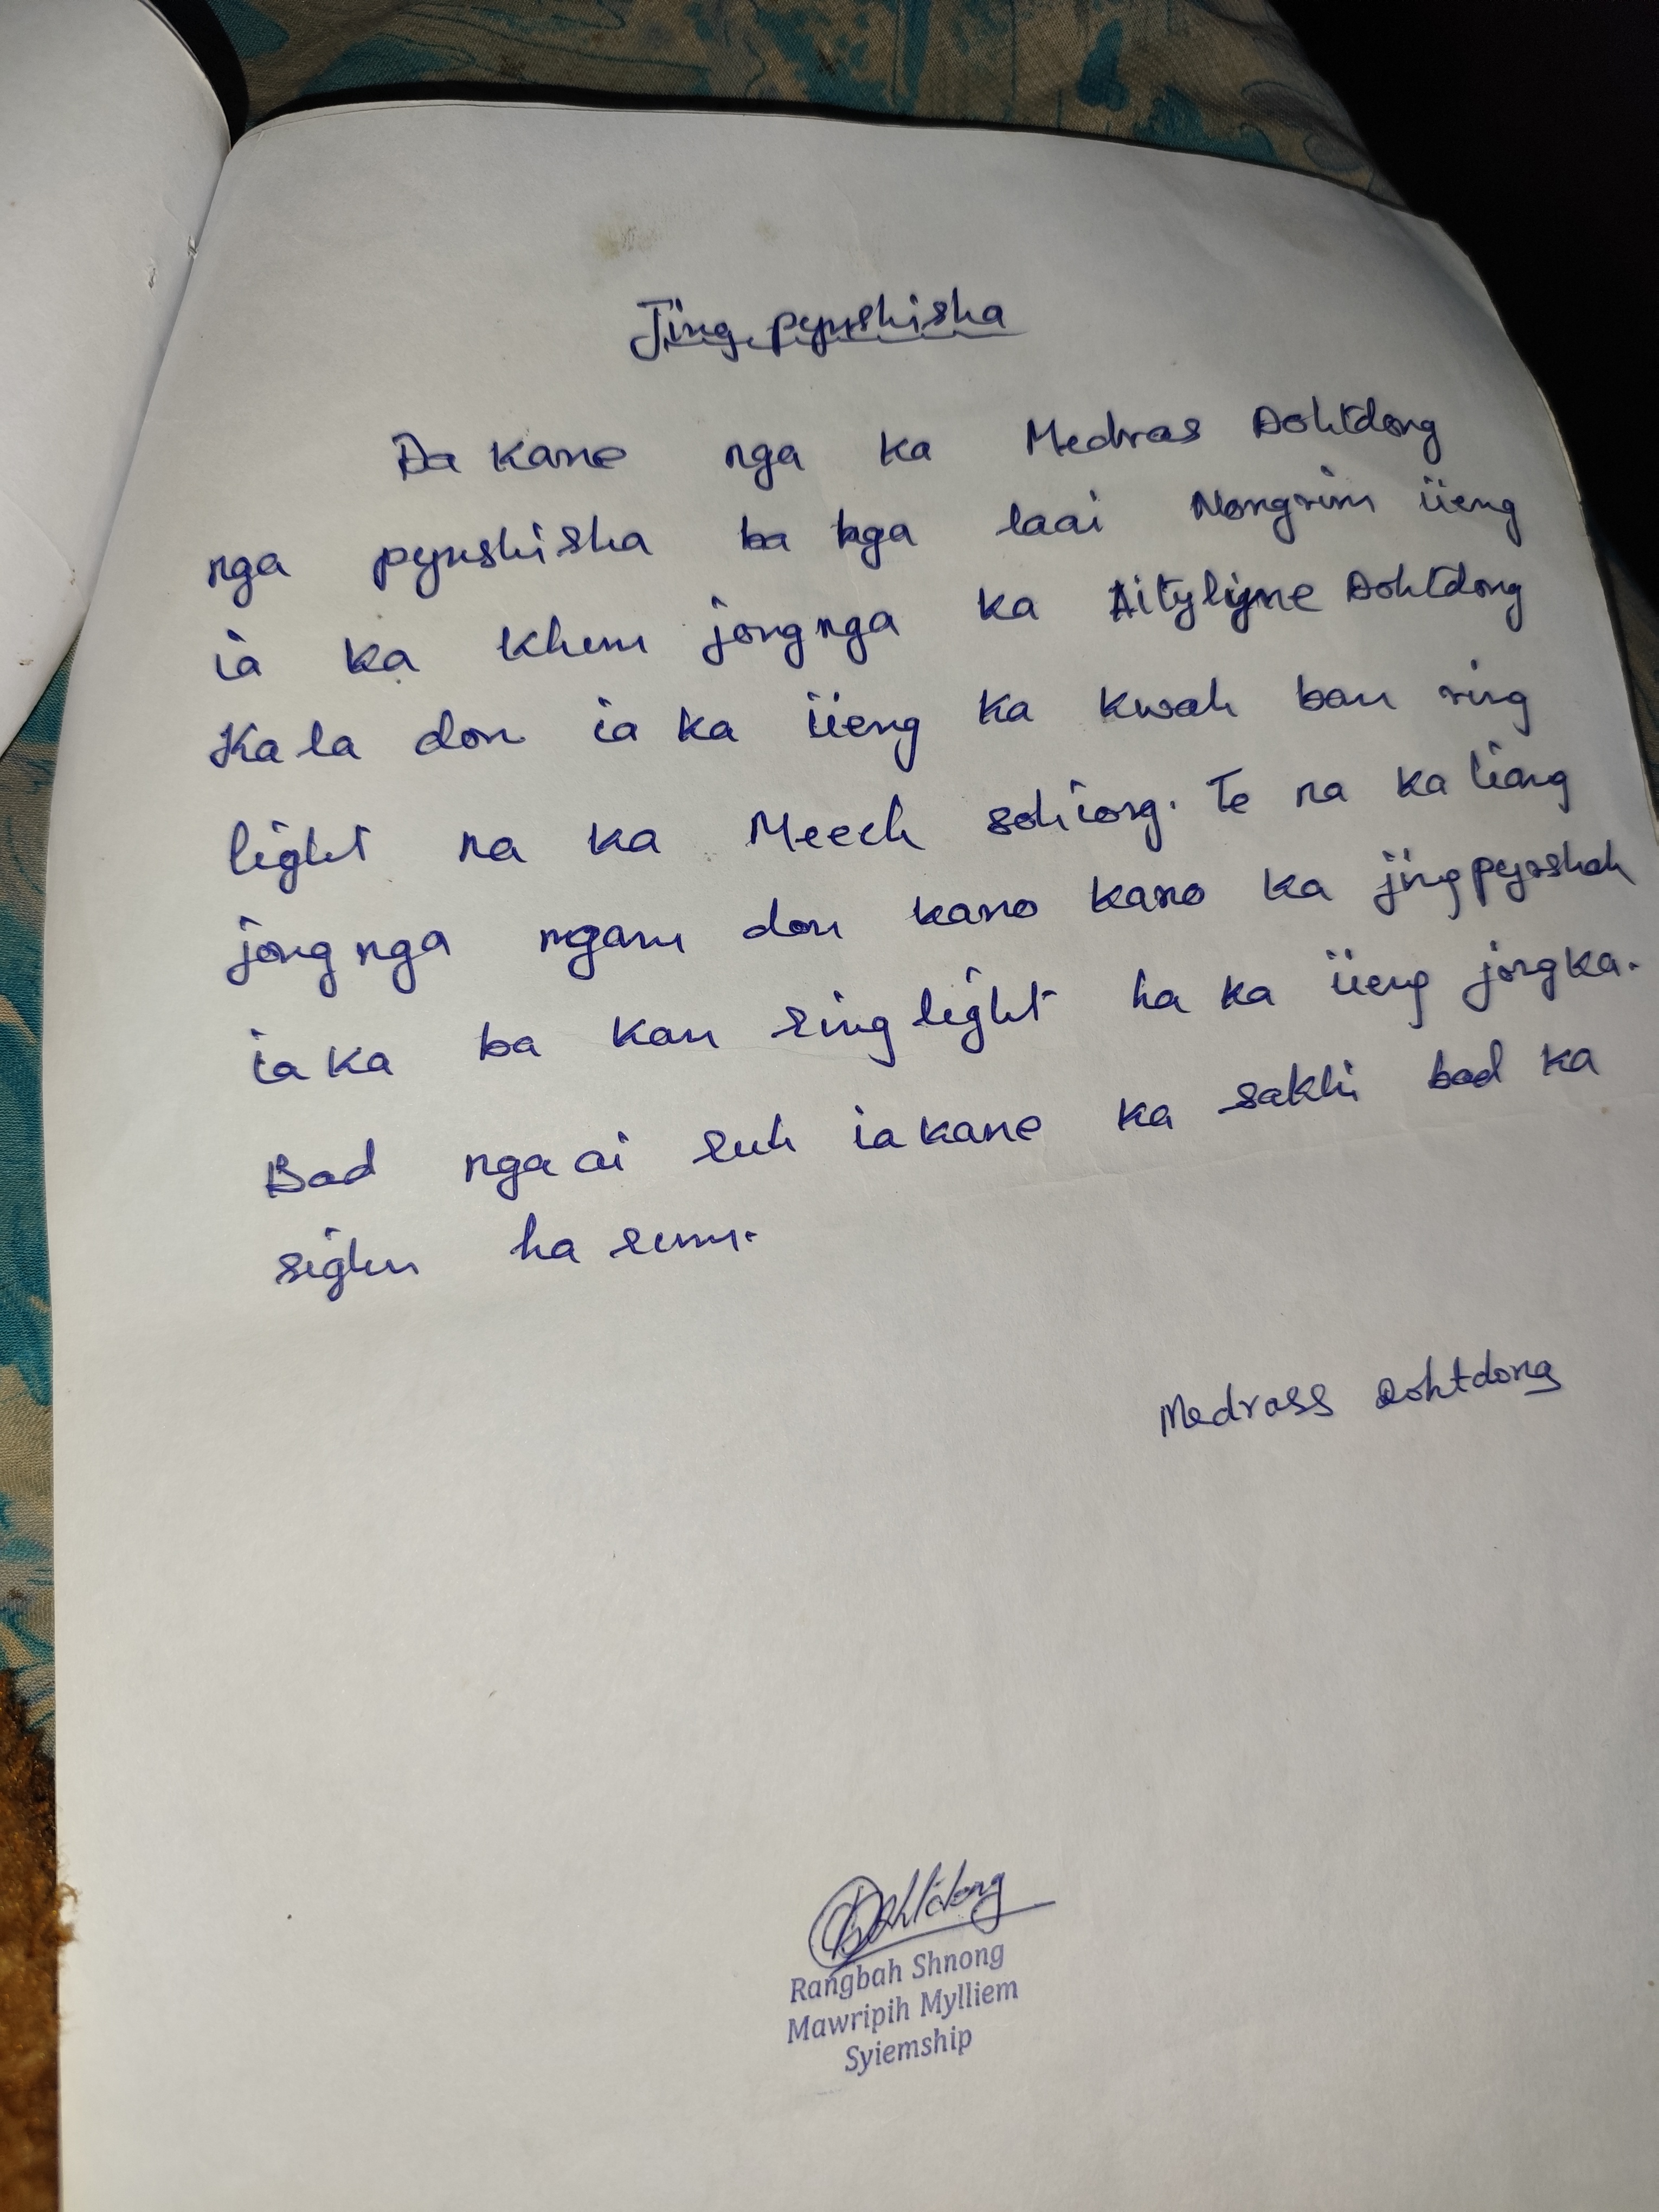 Jingpynshisha
Da Kane nga ka Medras Dohtdong
nga pynshisha ba nga laai Nongrim ïieng
ia ka khun jongnga ka Aitylyne Dohtdong
Ka la don ia ka ïieng ka kwah ban ring
light na ka Meech sohiong. Te na ka liang
jong nga ngam don kano kano ka jingpynshah
ia ka ba kan ring light ha ka ïieng jongka.
Bad nga ai ruh ia kane ka sakhi bad ka
sighn ha rum.
Medrass Dohtdong
Dohtdong
Rangbah Shnong
Mawripih Mylliem
Syiemship